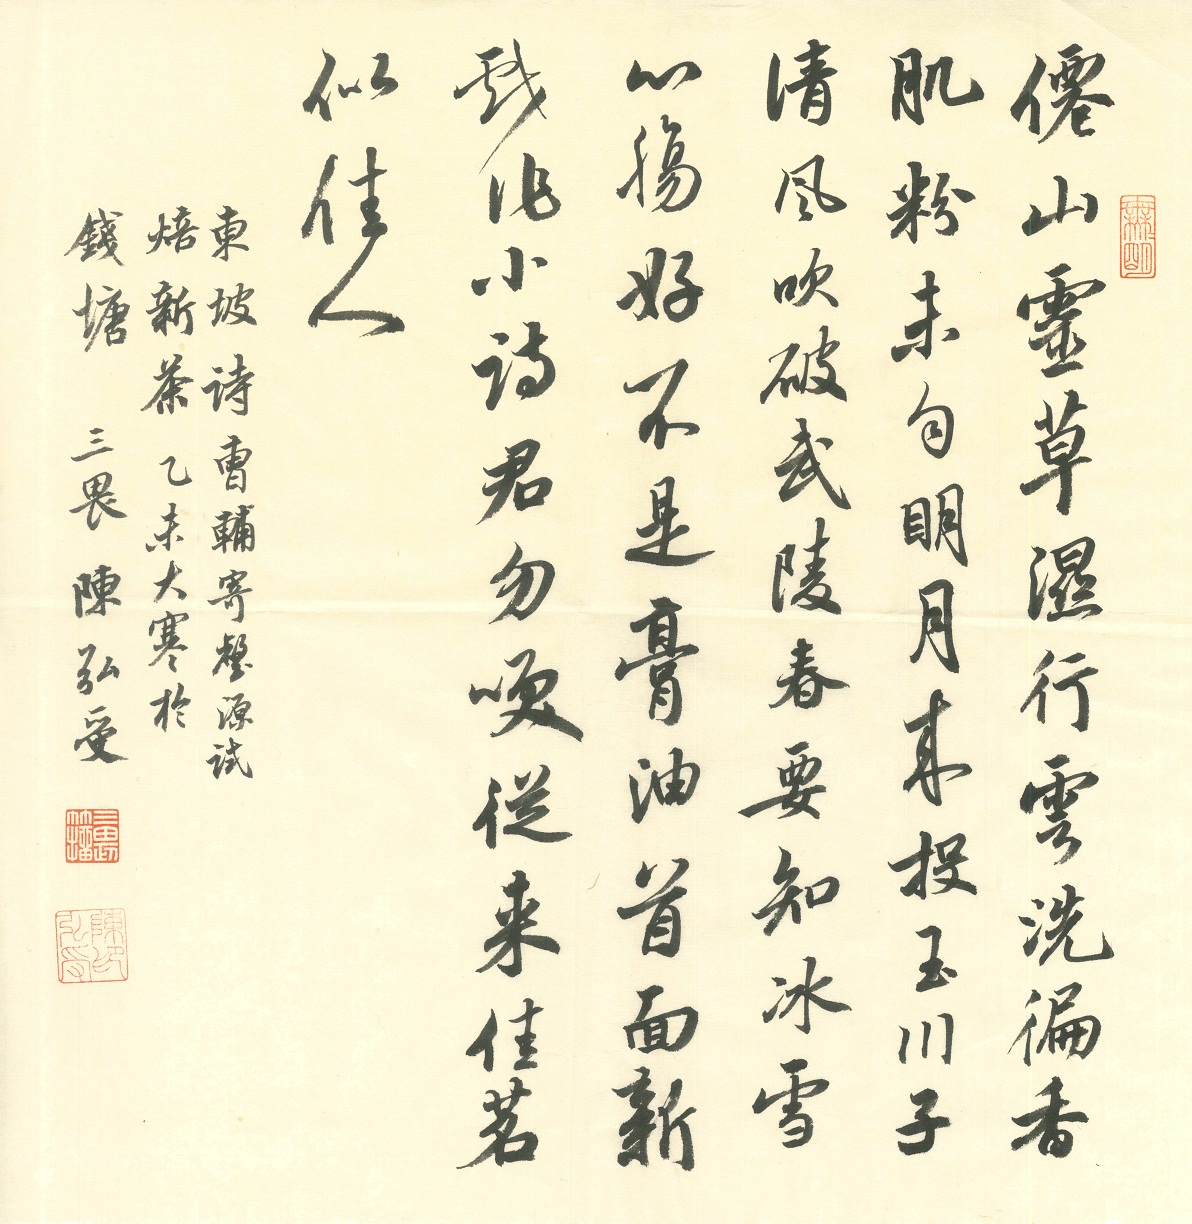 僊山靈草濕行雲洗徧香
肌粉未勻明月來投玉川子
清風吹破武陵春要知冰雪
心腸好不是膏油首面新
戲作小詩君勿咲從來佳茗
似佳人
東坡詩曹輔寄壑源試
焙新茶乙未大寒於
錢塘 三畏 陳弘受
陳印弘受